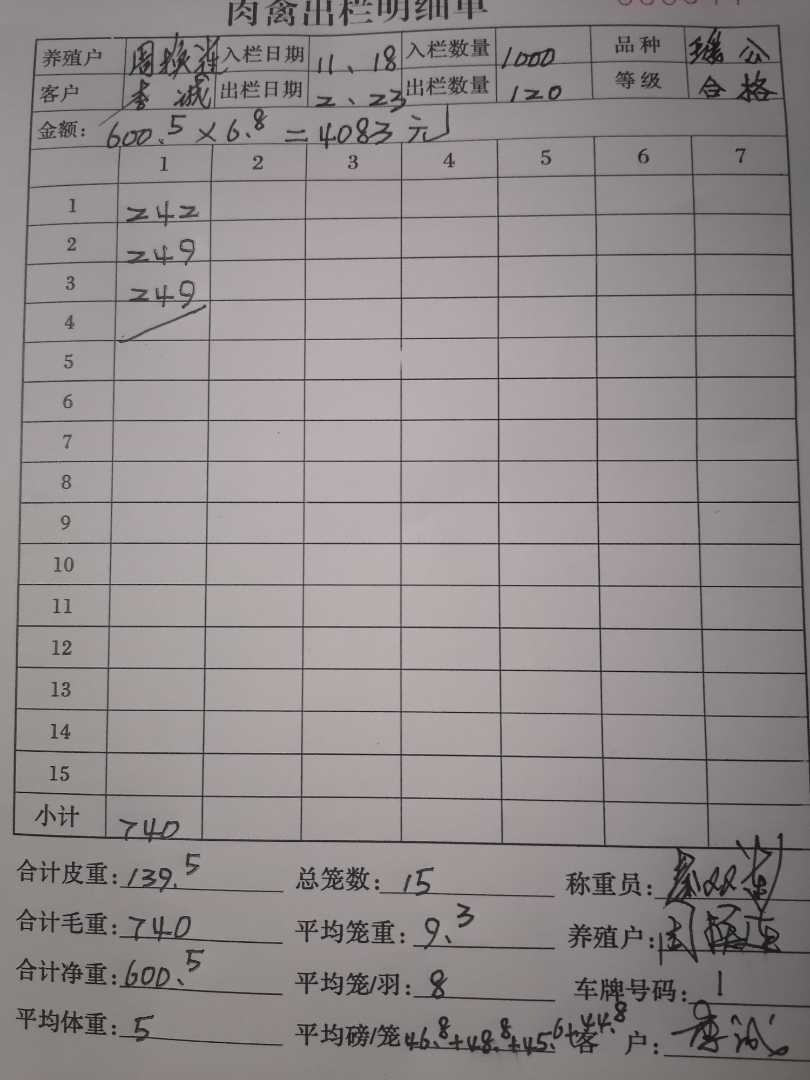 肉禽出栏明细单
养殖户 周 入栏日期 11、18 入栏数量 1000 品种 瑶公
客户 李诚 出栏日期 2、23 出栏数量 120 等级 合格
金额: 600.5×6.8=4083元
1 2 3 4 5 6 7
1 242
2 249
3 249
4
5
6
7
8
9
10
11
12
13
14
15
小计 740
合计皮重: 139.5 总笼数: 15 称重员:
合计毛重: 740 平均笼重: 9.3 养殖户: 周
合计净重: 600.5 平均笼/羽: 8 车牌号码: 1
平均体重: 5 平均磅/笼 46.8+48.8+45.6+44.8 客户: 李诚